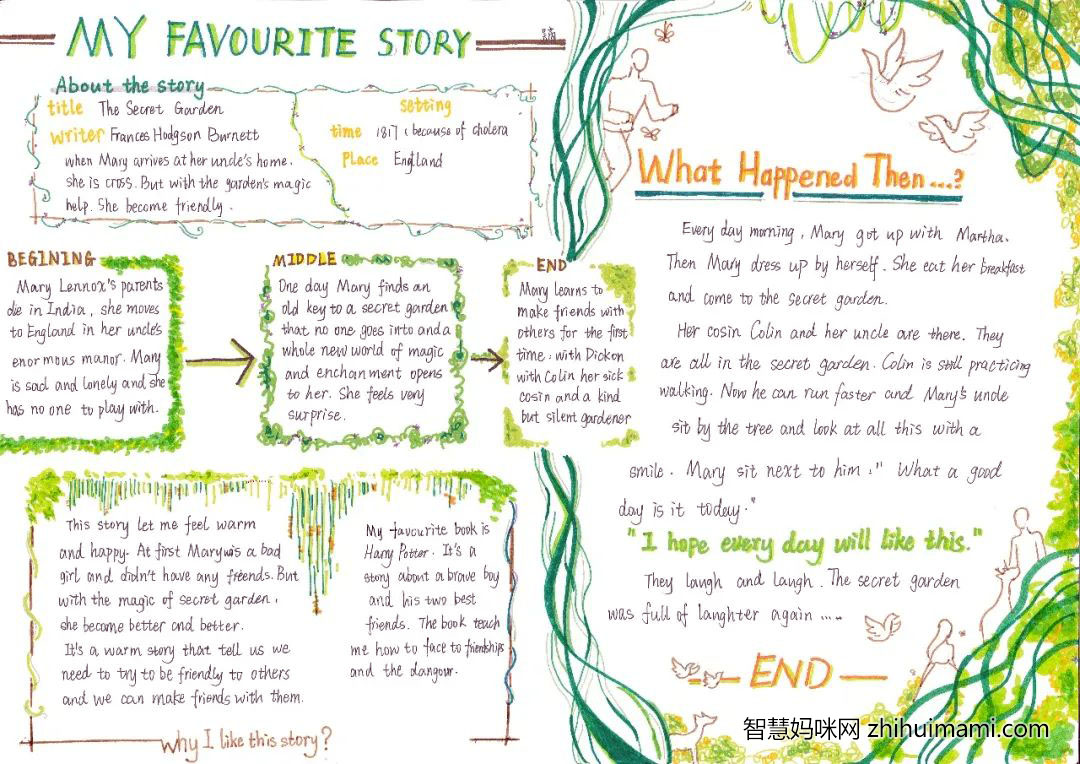 MY FAVOURITE STORY
About the story
title The Secret Garden
writer Frances Hodgson Burnett
when Mary arrives at her uncle's home.
she is cross. But with the garden's magic
help. She become friendly.
setting
time 1817 (because of cholera
Place England
BEGINING
Mary Lennox's parents
die in India, she moves
to England in her uncle's
enormous manor. Mary
is sad and lonely and she
has no one to play with.
MIDDLE
One day Mary finds an
old key to a secret garden
that no one goes into and a
whole new world of magic
and enchanment opens
to her. She feels very
surprise.
END
Mary learns to
make friends with
others for the first
time. with Dickon
with Colin her sick
cosin and a kind
but silent gardener
This story let me feel warm
and happy. At first Mary was a bad
girl and didn't have any friends. But
with the magic of secret garden,
she become better and better.
It's a warm story that tell us we
need to try to be friendly to others
and we can make friends with them.
My favourite book is
Harry Potter. It's a
story about a brave boy
and his two best
friends. The book teach
me how to face to friendships
and the dangour.
why I like this story?
What Happened Then...?
Every day morning, Mary got up with Martha.
Then Mary dress up by herself. She eat her breakfast
and come to the secret garden.
Her cosin Colin and her uncle are there. They
are all in the secret garden. Colin is still practicing
walking. Now he can run faster and Mary's uncle
sit by the tree and look at all this with a
smile. Mary sit next to him," What a good
day is it today."
"I hope every day will like this."
They laugh and laugh. The secret garden
was full of laughter again ....
END
智慧妈咪网 zhihuimami.com